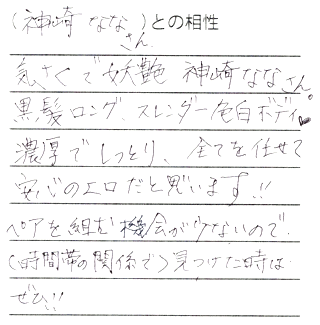 (神崎なな さん)との相性
気さくで妖艶 神崎ななさん。
黒髪ロング、スレンダー色白ボディ
濃厚でしっとり、全てを任せて
安心のエロだと思います!!
ペアを組む機会が少ないので、
(時間帯の関係で)見つけた時は
ぜひ!!